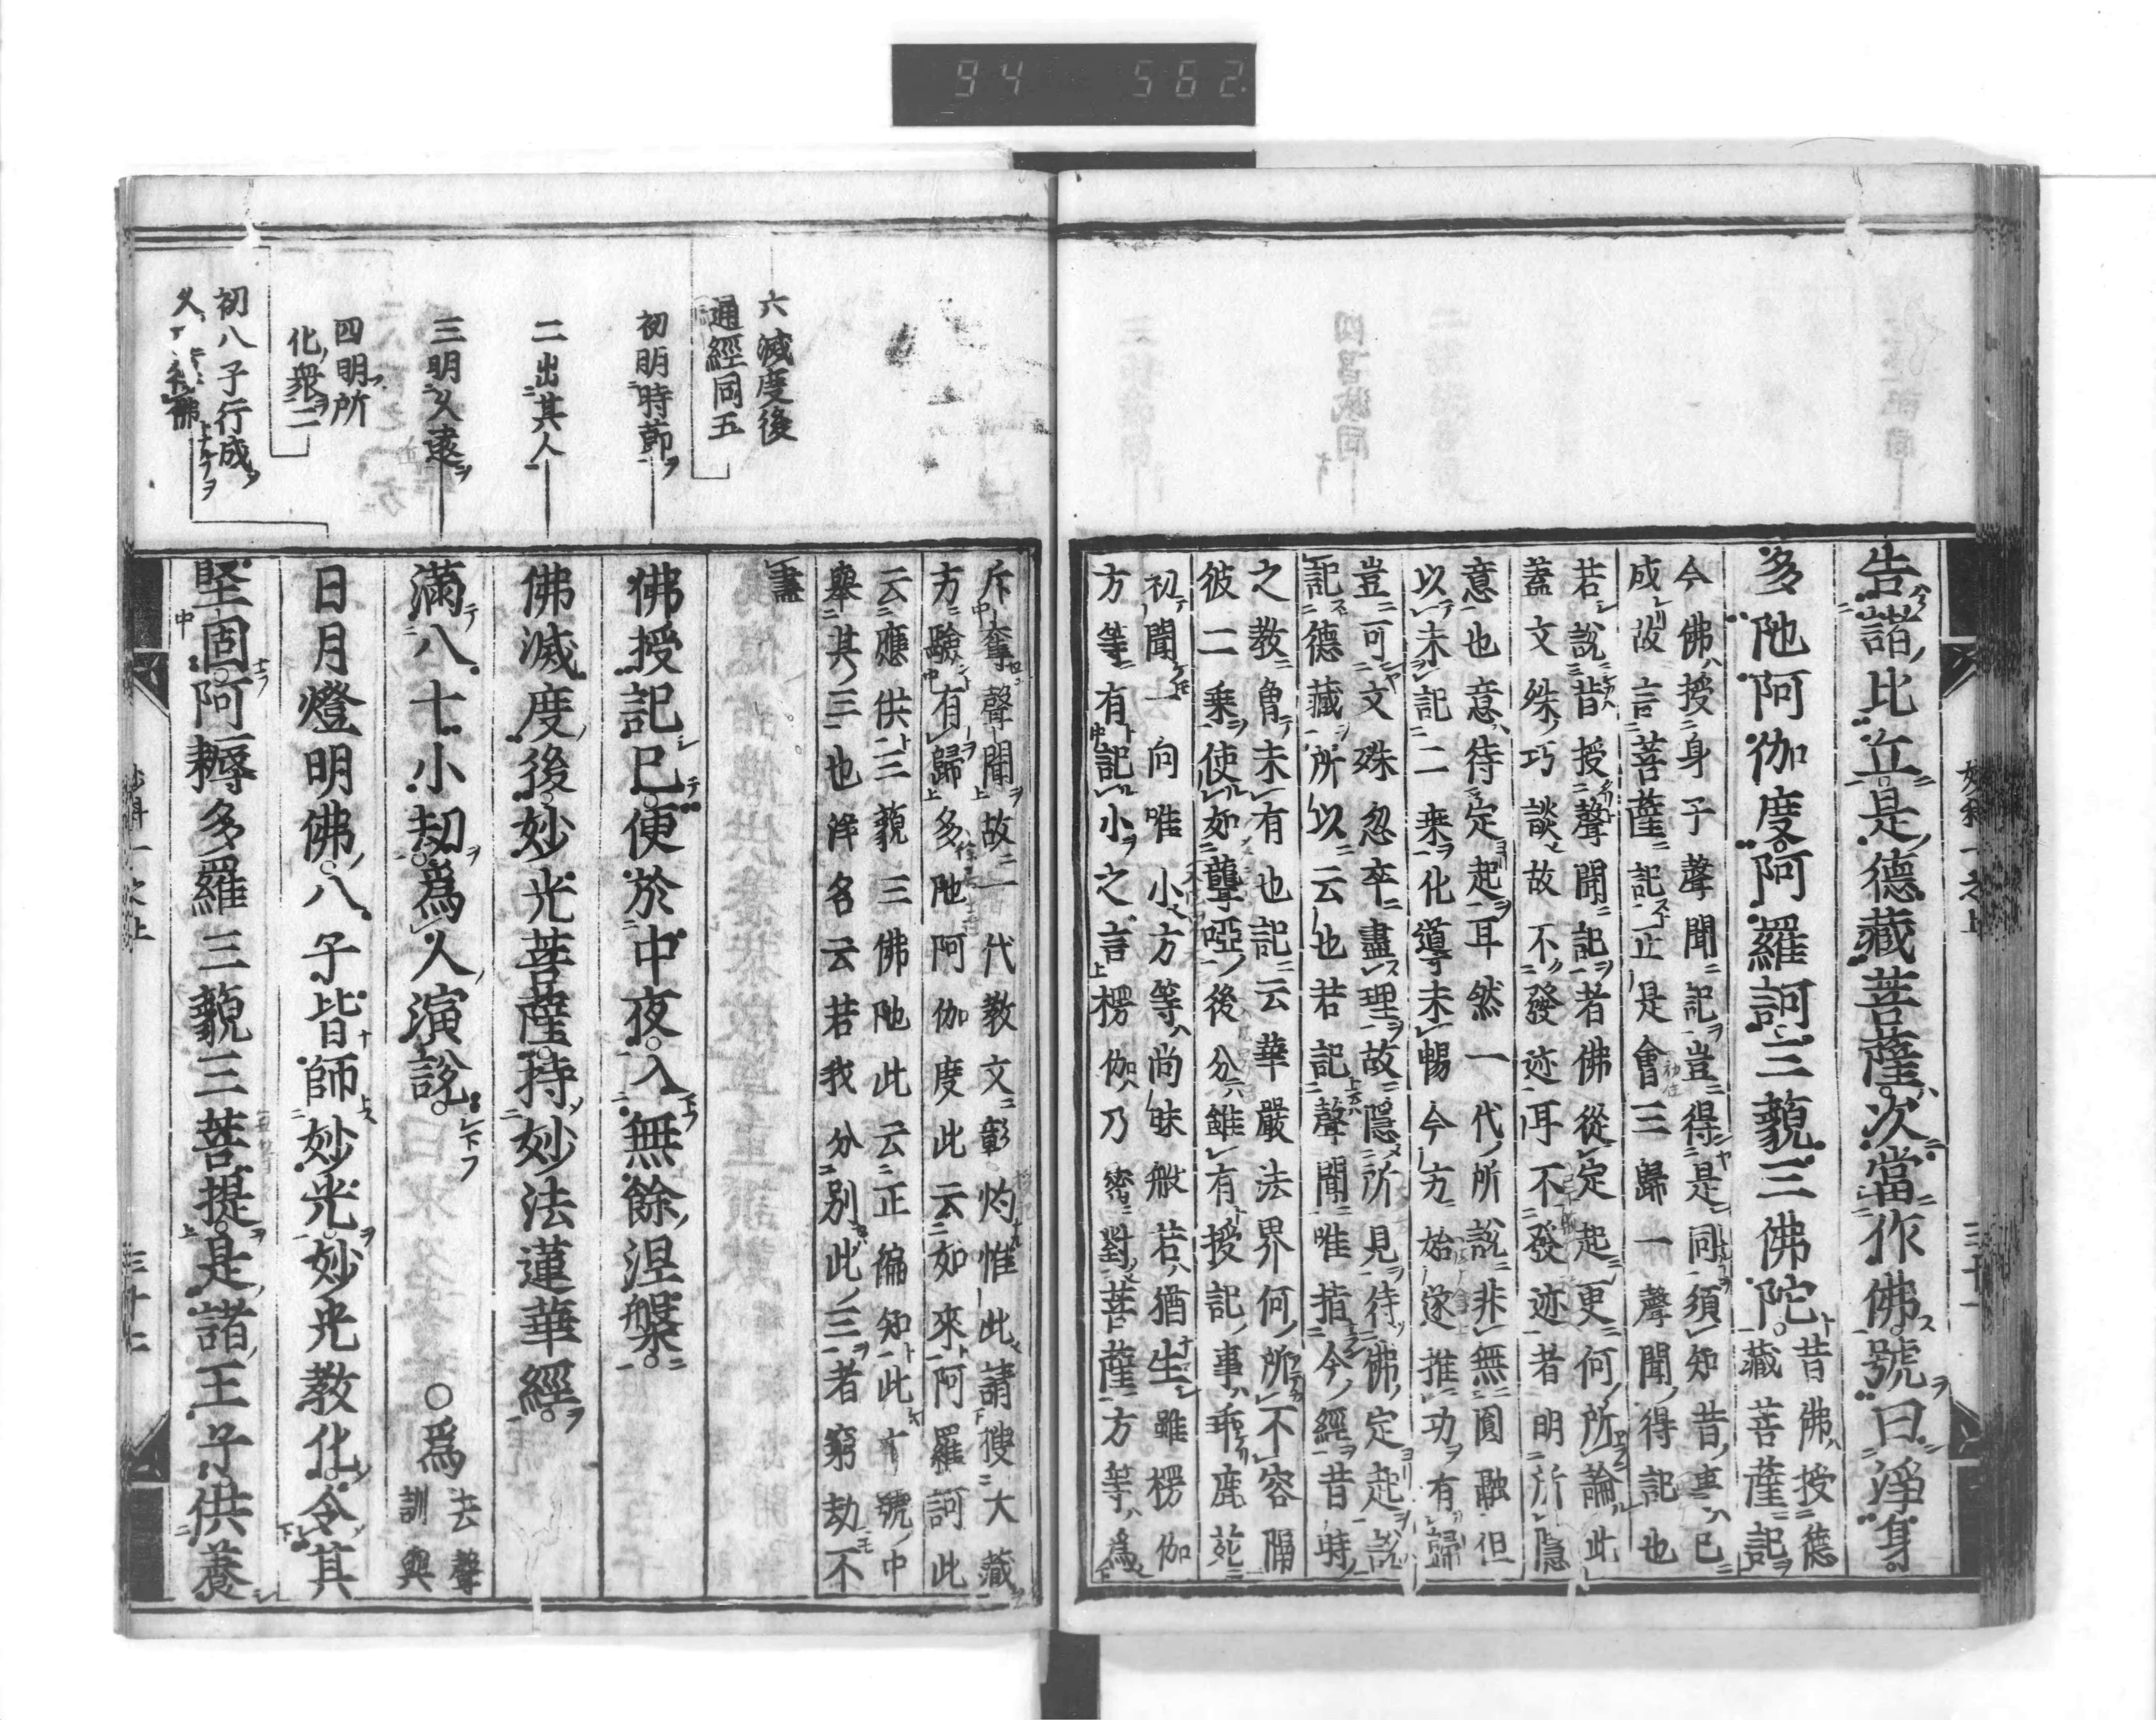 94 562
告諸比丘是德藏菩薩次當作佛號曰淨身
多陁阿伽度阿羅訶三藐三佛陀
昔佛授德
藏菩薩記
今佛授身子聲聞記豈得是同須知昔事已
成故言菩薩記正是會三歸一聲聞得記也
若說昔授聲聞記者佛從定起更何所論此
蓋文殊巧談故不發迹耳不發迹者明所隱
意也意待定起耳然一代所說非無圓融但
以未記二乘化道未暢今方始遂推功有歸
豈可文殊忽卒盡理故隱所見待佛定起說
記德藏所以云也若記聲聞唯指今經昔時
之教曾未有也記云華嚴法界何所不容隔
彼二乘使如聾啞後分雖有授記事乖鹿苑
初聞一向唯小方等尚昧般若猶生雖楞伽
方等有記小之言楞伽乃密對菩薩方等為
妙科一之上
三十一
斥奪聲聞故一代教文彰灼惟此請搜大藏
方驗有歸多陁阿伽度此云如來阿羅訶此
云應供三藐三佛陁此云正徧知此十號中
舉其三也淨名云若我分別此三者窮劫不
盡
佛授記已便於中夜入無餘涅槃
佛滅度後妙光菩薩持妙法蓮華經
滿八十小劫為人演說
○為
去聲
訓與
日月燈明佛八子皆師妙光妙光教化令其
堅固阿耨多羅三藐三菩提是諸王子供養
六滅度後
通經同五
初明時節
二出其人
三明久遠
四明所
化衆二
初八子行成
妙科一之上
三十二